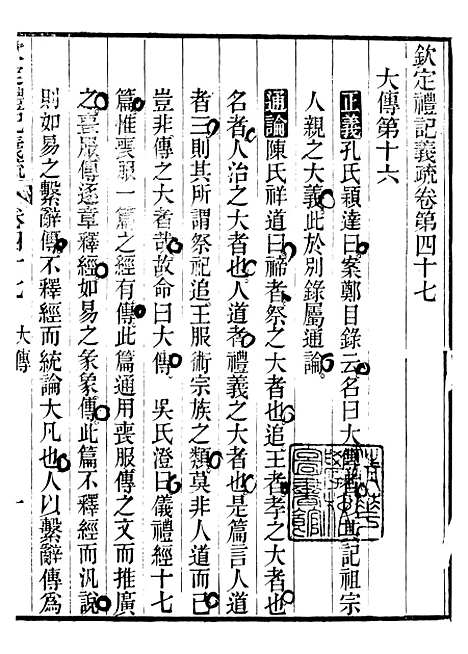 欽定禮記義疏卷第四十七
大傳第十六
正義孔氏穎達曰案鄭目錄云名曰大傳者以其記祖宗
人親之大義此於別錄屬通論
通論陳氏祥道曰禘者祭之大者也追王者孝之大者也
名者人治之大者也人道者禮義之大者也是篇言人道
者三則其所謂祭祀追王服術宗族之類莫非人道而已
豈非傳之大者哉故命曰大傳 吳氏澄曰儀禮經十七
篇惟喪服一篇之經有傳此篇通用喪服傳之文而推廣
之喪服傳逐章釋經如易之彖象傳此篇不釋經而汎說
則如易之繫辭傳不釋經而統論大凡也人以繫辭傳爲
欽定禮記義疏 卷四十七 大傳 一